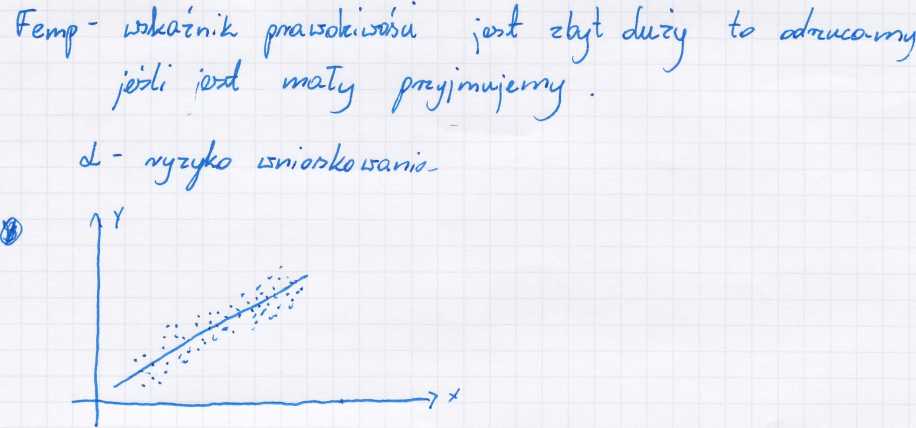 Femp - wskaźnik prawdziwości jest zbyt duży to odrzucamy
jeśli jest mały przyjmujemy.
α - ryzyko wnioskowania
Y
X